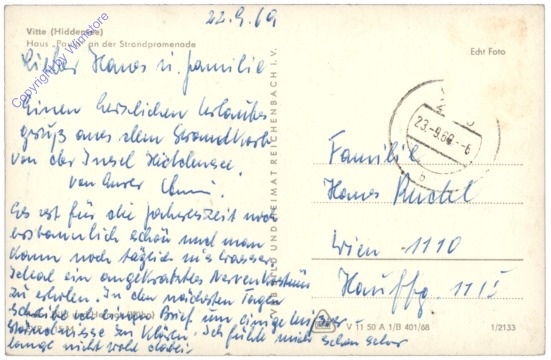 22.9.69
Vitte (Hiddensee)
Haus „ an der Strandpromenade
Echt Foto
Copyright by Wimstore
Lieber Hannes u. Familie
Einen herzlichen Urlaubs
gruß aus dem Strandkorb
von der Insel Hiddensee.
von Eurer
Es ist für die Jahreszeit noch
erstaunlich schön und man
kann noch täglich ins Wasser.
Ideal ein angekratztes Nervenkostüm
zu erholen. In den nächsten Tagen
schreibe ich einen Brief um einige Missver-
ständnisse zu klären. Ich fühle mich schon sehr
lange nicht wohl dabei
VEB BILD UND HEIMAT REICHENBACH i. V.
23.-9.69.-6
b
Familie
Hannes
Wien - 1110
Hauffg.
V 11 50 A 1/B 401/68
1/2133